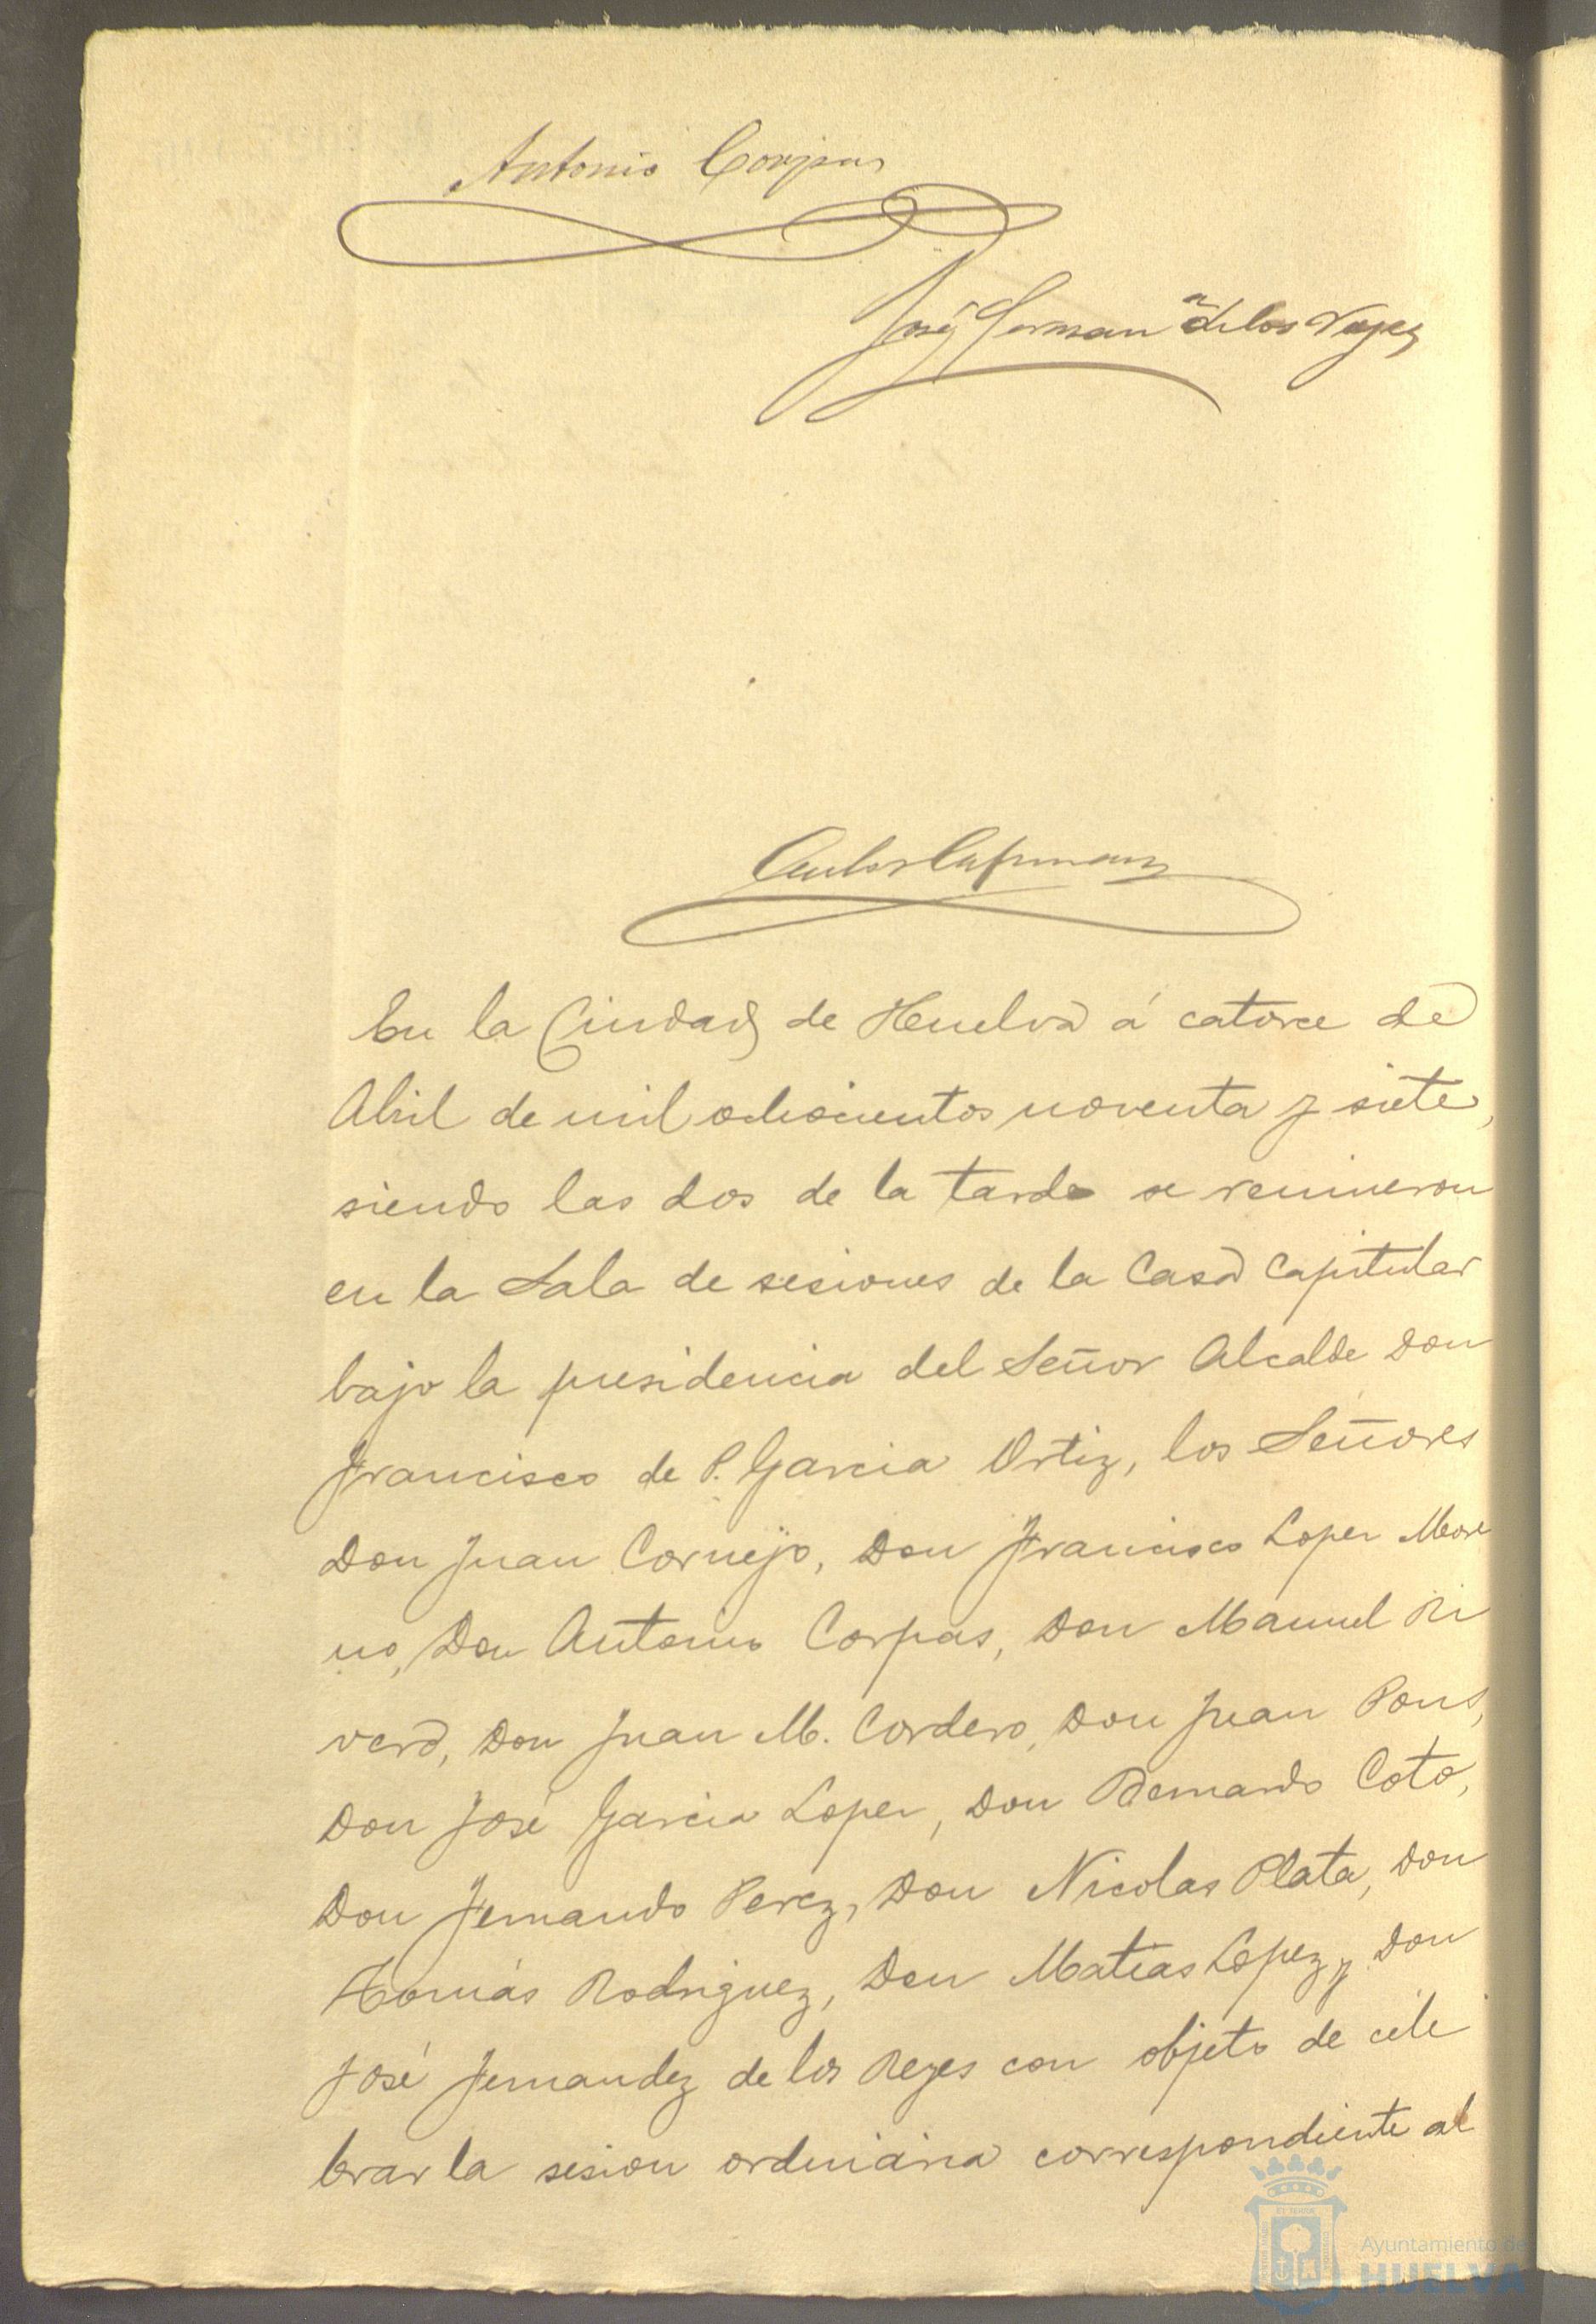 Antonio Corpas
José Fernan.z de los Reyes
Carlos
En la Ciudad de Huelva á catorce de
Abril de mil ochocientos noventa y siete,
siendo las dos de la tarde se reunieron
en la Sala de sesiones de la Casa Capitular
bajo la presidencia del Señor Alcalde Don
Francisco de P. Garcia Ortiz, los Señores
Don Juan Cornejo, Don Francisco Lopez More
no, Don Antonio Corpas, Don Manuel Ri
vero, Don Juan M. Cordero, Don Juan Pons,
Don José Garcia Lopez, Don Bernardo Coto,
Don Fernando Perez, Don Nicolas Plata, Don
Tomás Rodriguez, Don Matias Lopez y Don
José Fernandez de los Reyes con objeto de cele
brar la sesion ordinaria correspondiente al
Ayuntamiento de
HUELVA